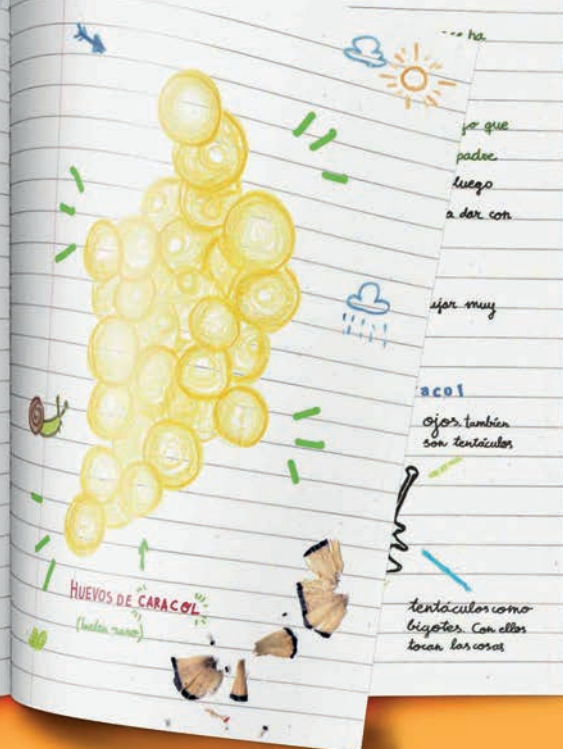 HUEVOS DE CARACOL
(huelen raro)
ha
jo que
padre
luego
a dar con
ujar muy
acol
ojos. también
son tentáculos
tentáculos como
bigotes. Con ellos
tocan las cosas